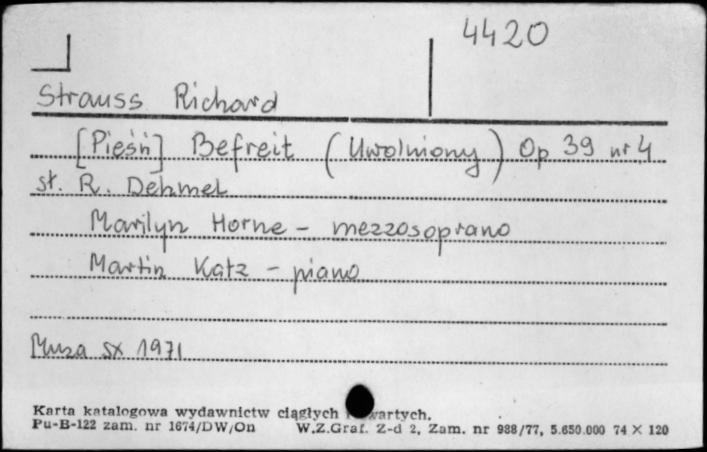 4420
Strauss Richard
[Pieśń] Befreit (Uwolniony) Op 39 nr 4
sł. R. Dehmel
Marilyn Horne - mezzosoprano
Martin Katz - piano
Muza SX 1971
Karta katalogowa wydawnictw ciągłych i zwartych.
Pu-B-122 zam. nr 1674/DW/On W.Z.Graf. Z-d 2, Zam. nr 988/77, 5.650.000 74 X 120